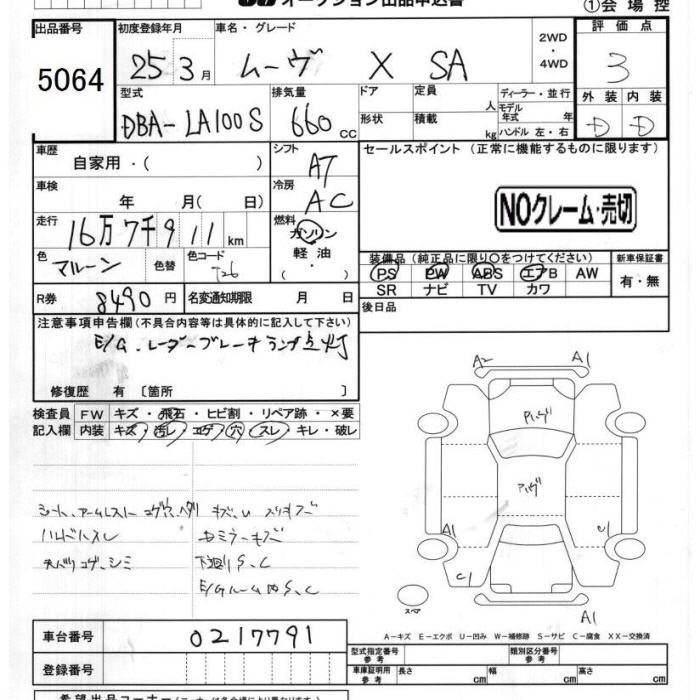 オークション出品申込書
①会場控
出品番号
5064
初度登録年月
25 3月
車名・グレード
ムーヴ X SA
2WD
・
4WD
評価点
3
外装 内装
D D
型式
DBA-LA100S
排気量
660 cc
ドア
形状
定員 人
積載 kg
ディーラー・並行
モデル年式 年
ハンドル 左・右
車歴
自家用・( )
シフト
AT
車検
年 月( 日)
冷房
AC
セールスポイント(正常に機能するものに限ります)
NOクレーム・売切
走行
16万7千911km
燃料
ガソリン
軽油
色
マルーン
色替
色コード
T26
装備品(純正品に限り○をつけてください)
PS PW ABS エアB AW
SR ナビ TV カワ
新車保証書
有・無
R券
8490円
名変通知期限 月 日
後日品
注意事項申告欄(不具合内容等は具体的に記入して下さい)
E/G.レーダーブレーキランプ点灯
修復歴 有〔箇所 〕
検査員
記入欄
FW キズ・飛石・ヒビ割・リペア跡・×要
内装 キズ・汚レ・コゲ・穴・スレ・キレ・破レ
シート、アームレスト コゲ穴、ヘタリ
キズ、U スリキズ
ハンドルスレ
Dミラーキズ
天バリコゲ、シミ
下廻りS、C
E/Gルーム内S、C
A2
A1
アハゲ
アハゲ
A1
C1
C1
A1
スペア
A−キズ E−エクボ U−凹み W−補修跡 S−サビ C−腐食 XX−交換済
車台番号
0217791
登録番号
型式指定番号
参考
類別区分番号
参考
車庫証明用
参考
長さ cm
幅 cm
高さ cm
希望出品コーナー